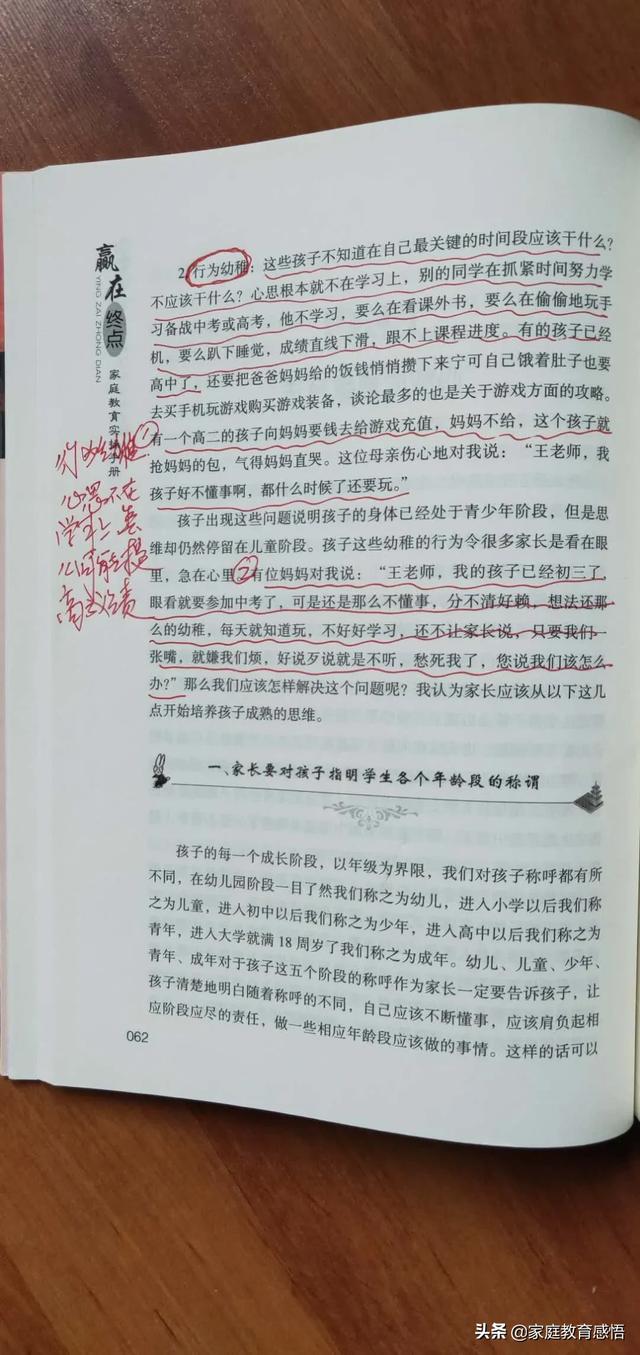 赢在终点
YING ZAI ZHONG DIAN
家庭教育实操手册
2.行为幼稚：这些孩子不知道在自己最关键的时间段应该干什么？
不应该干什么？心思根本就不在学习上，别的同学在抓紧时间努力学
习备战中考或高考，他不学习，要么在看课外书，要么在偷偷地玩手
机，要么趴下睡觉，成绩直线下滑，跟不上课程进度。有的孩子已经
高中了，还要把爸爸妈妈给的饭钱悄悄攒下来宁可自己饿着肚子也要
去买手机玩游戏购买游戏装备，谈论最多的也是关于游戏方面的攻略。
有一个高二的孩子向妈妈要钱去给游戏充值，妈妈不给，这个孩子就
抢妈妈的包，气得妈妈直哭。这位母亲伤心地对我说：“王老师，我
孩子好不懂事啊，都什么时候了还要玩。”
孩子出现这些问题说明孩子的身体已经处于青少年阶段，但是思
维却仍然停留在儿童阶段。孩子这些幼稚的行为令很多家长是看在眼
里，急在心里②有位妈妈对我说：“王老师，我的孩子已经初三了，
眼看就要参加中考了，可是还是那么不懂事，分不清好赖，想法还那
么的幼稚，每天就知道玩，不好好学习，还不让家长说，只要我们一
张嘴，就嫌我们烦，好说歹说就是不听，愁死我了，您说我们该怎么
办？”那么我们应该怎样解决这个问题呢？我认为家长应该从以下这几
点开始培养孩子成熟的思维。
行为幼稚①
心思不在
学习上怎
么可能提
高成绩
一、家长要对孩子指明学生各个年龄段的称谓
孩子的每一个成长阶段，以年级为界限，我们对孩子称呼都有所
不同，在幼儿园阶段一目了然我们称之为幼儿，进入小学以后我们称
之为儿童，进入初中以后我们称之为少年，进入高中以后我们称之为
青年，进入大学就满18周岁了我们称之为成年。幼儿、儿童、少年、
青年、成年对于孩子这五个阶段的称呼作为家长一定要告诉孩子，让
孩子清楚地明白随着称呼的不同，自己应该不断懂事，应该肩负起相
应阶段应尽的责任，做一些相应年龄段应该做的事情。这样的话可以
062
头条 @家庭教育感悟